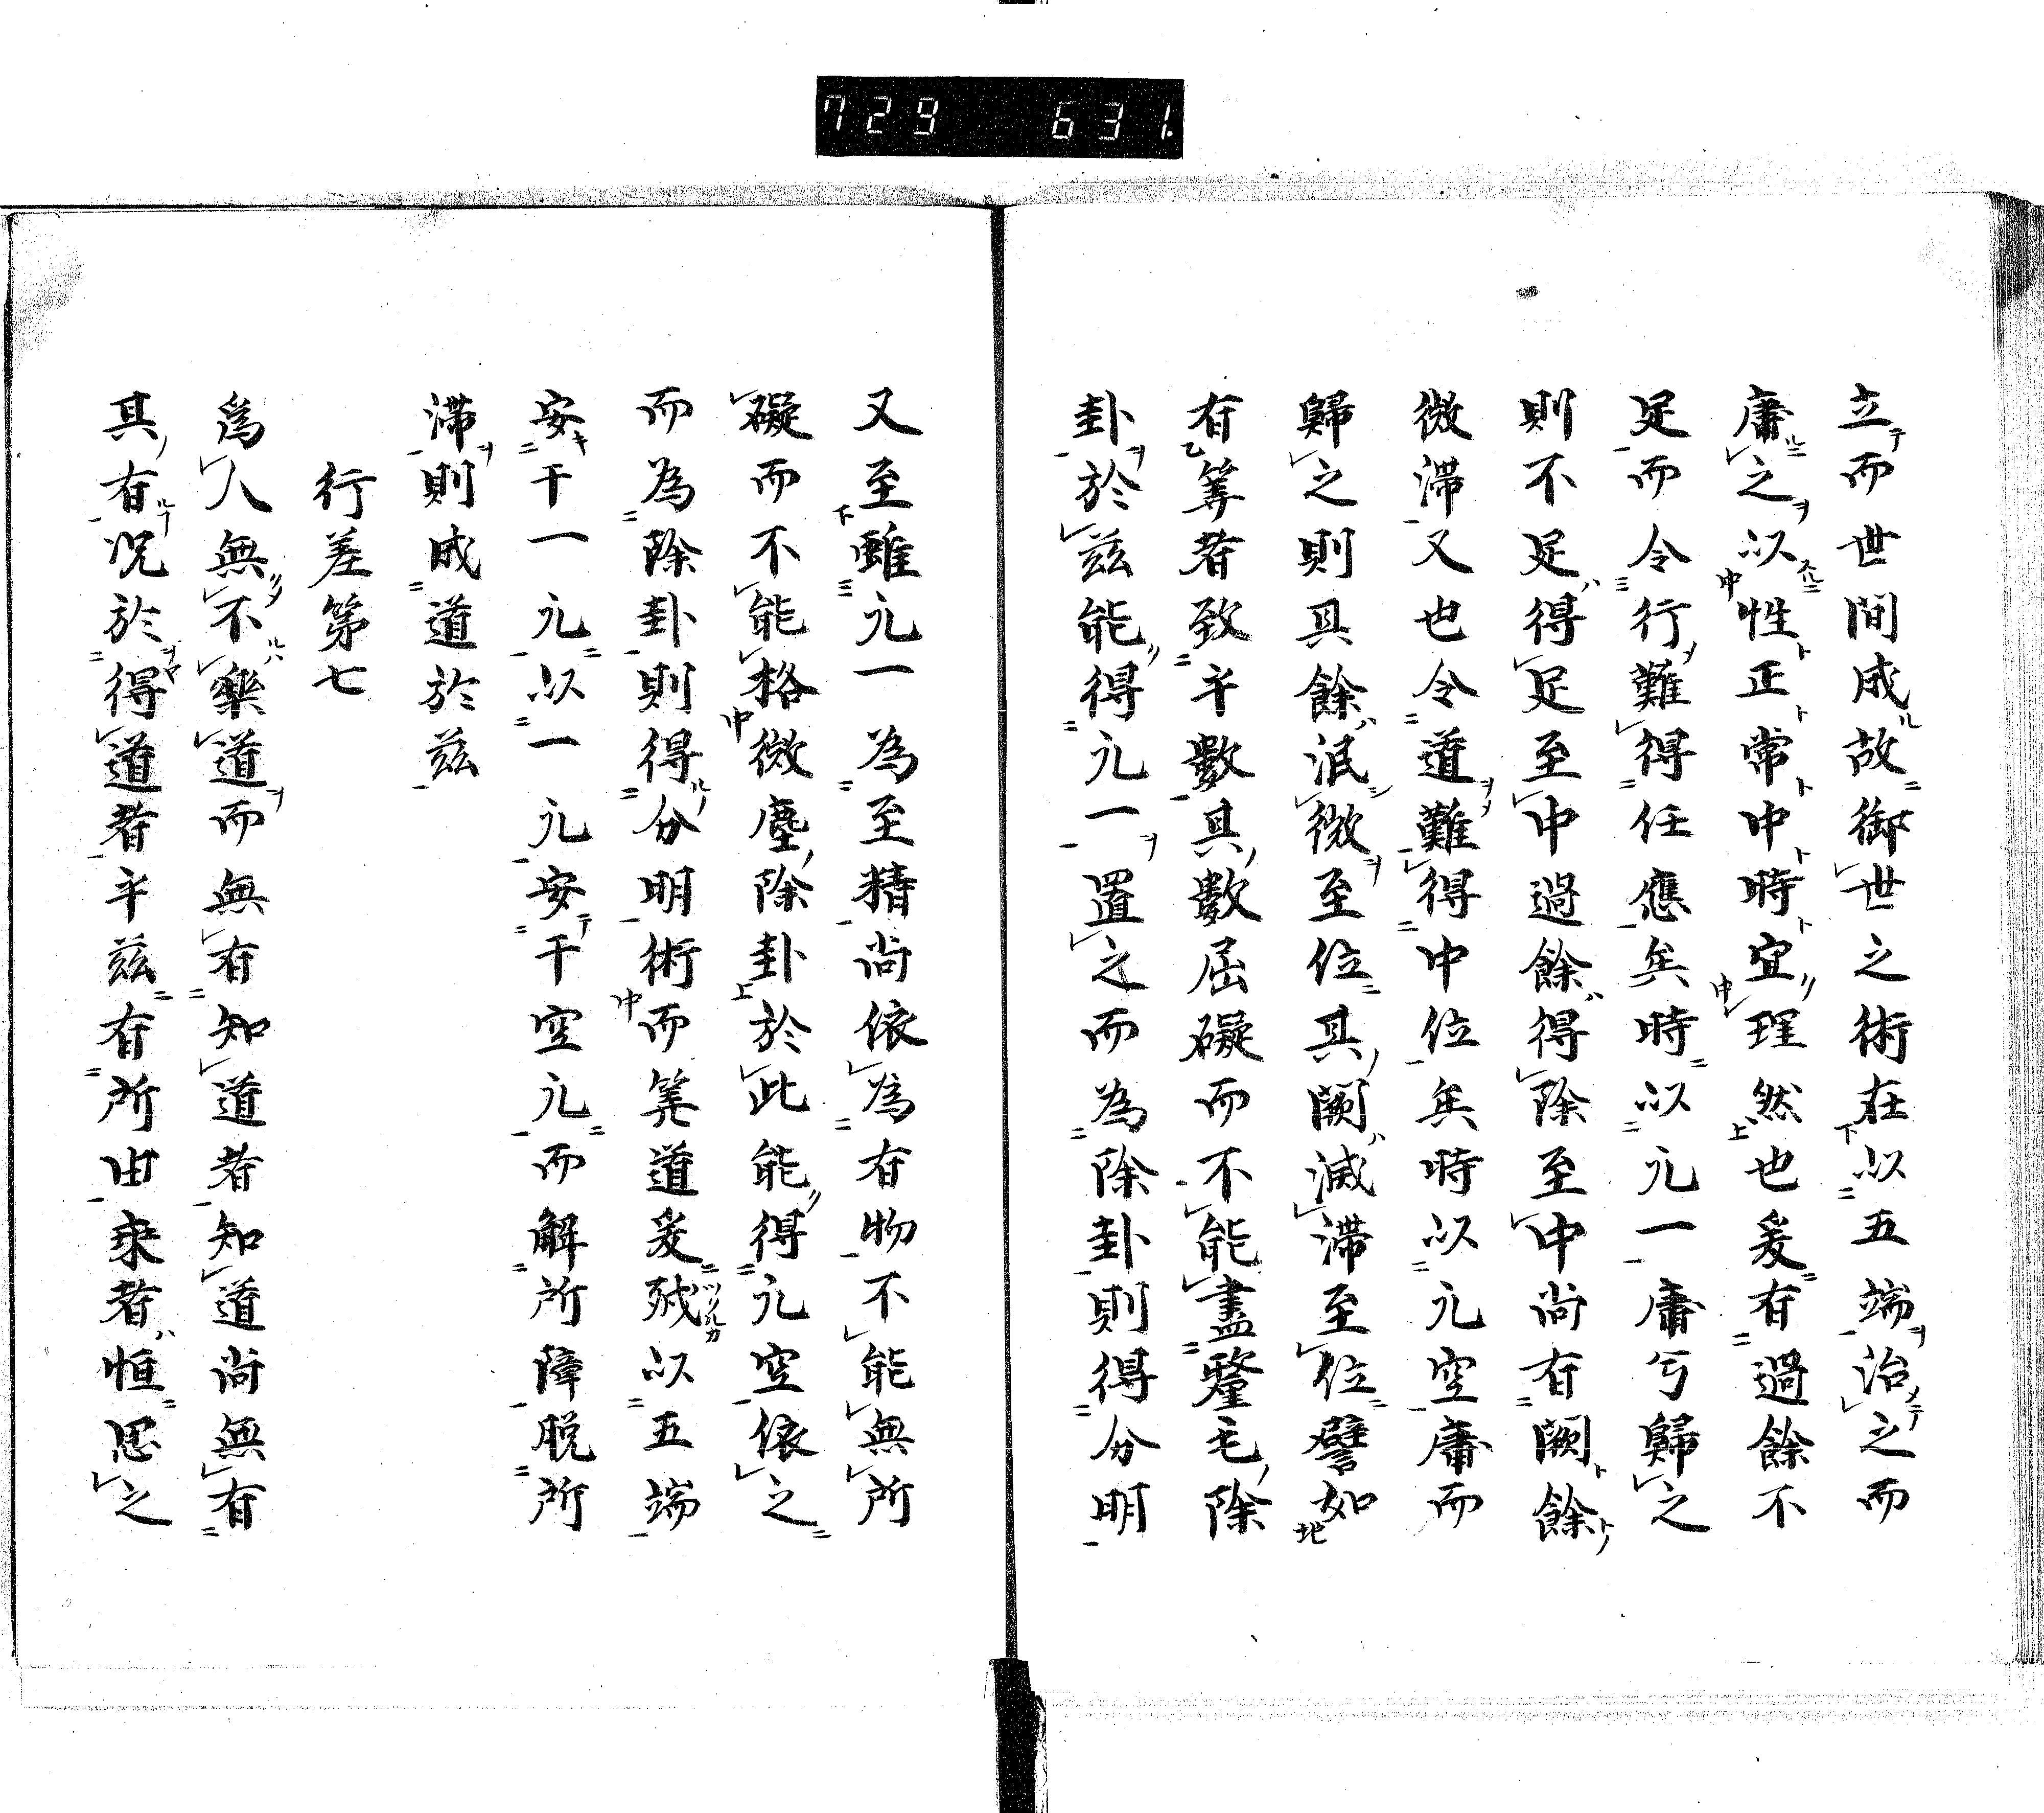 729 631.
立而世間成故御世之術在以五端治之而
庸之以性正常中時宜理然也爰有過餘不
足而令行難得任應矣時以元一庸亏歸之
則不足得足至中過餘得除至中尚有闕餘
微滞又也令道難得中位矣時以元空庸而
歸之則具餘泯微至位其闕滅滞至位譬如
有筭者致半數其數屈礙而不能盡釐毛除
卦於兹能得元一置之而為除卦則得分明
又至雖元一為至精尚依為有物不能無所
礙而不能格微塵除卦於此能得元空依之
而為除卦則得分明術而筭道爰殘以五端
安干一元以一元安干空元而解所障脱所
滞則成道於兹
行差第七
爲人無不樂道而無有知道者知道尚無有
其有况於得道者半兹有所由来者恒思之